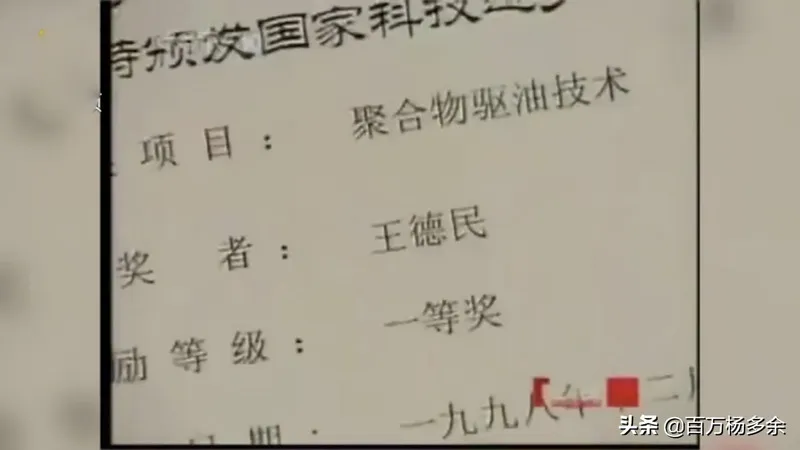 特颁发国家科技进步
项目：聚合物驱油技术
奖者：王德民
励等级：一等奖
日期：一九九八年十二月
头条 @百万杨多余